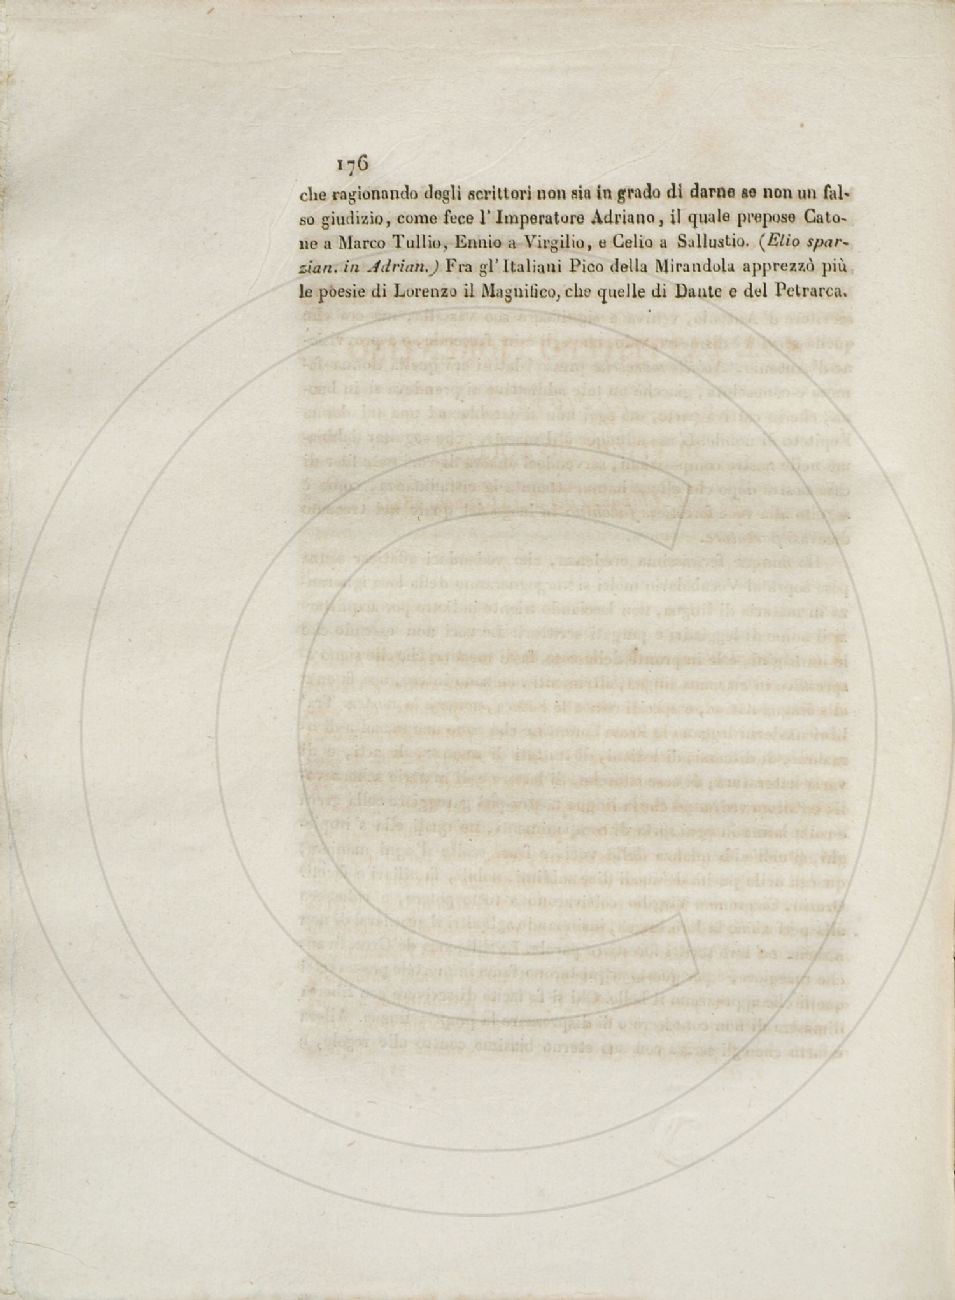 176
che ragionando degli scrittori non sia in grado di darne se non un fal-
so giudizio, come fece l'Imperatore Adriano, il quale prepose Cato-
ne a Marco Tullio, Ennio a Virgilio, e Celio a Sallustio. (Elio spar-
zian. in Adrian.) Fra gl'Italiani Pico della Mirandola apprezzò più
le poesie di Lorenzo il Magnifico, che quelle di Dante e del Petrarca.